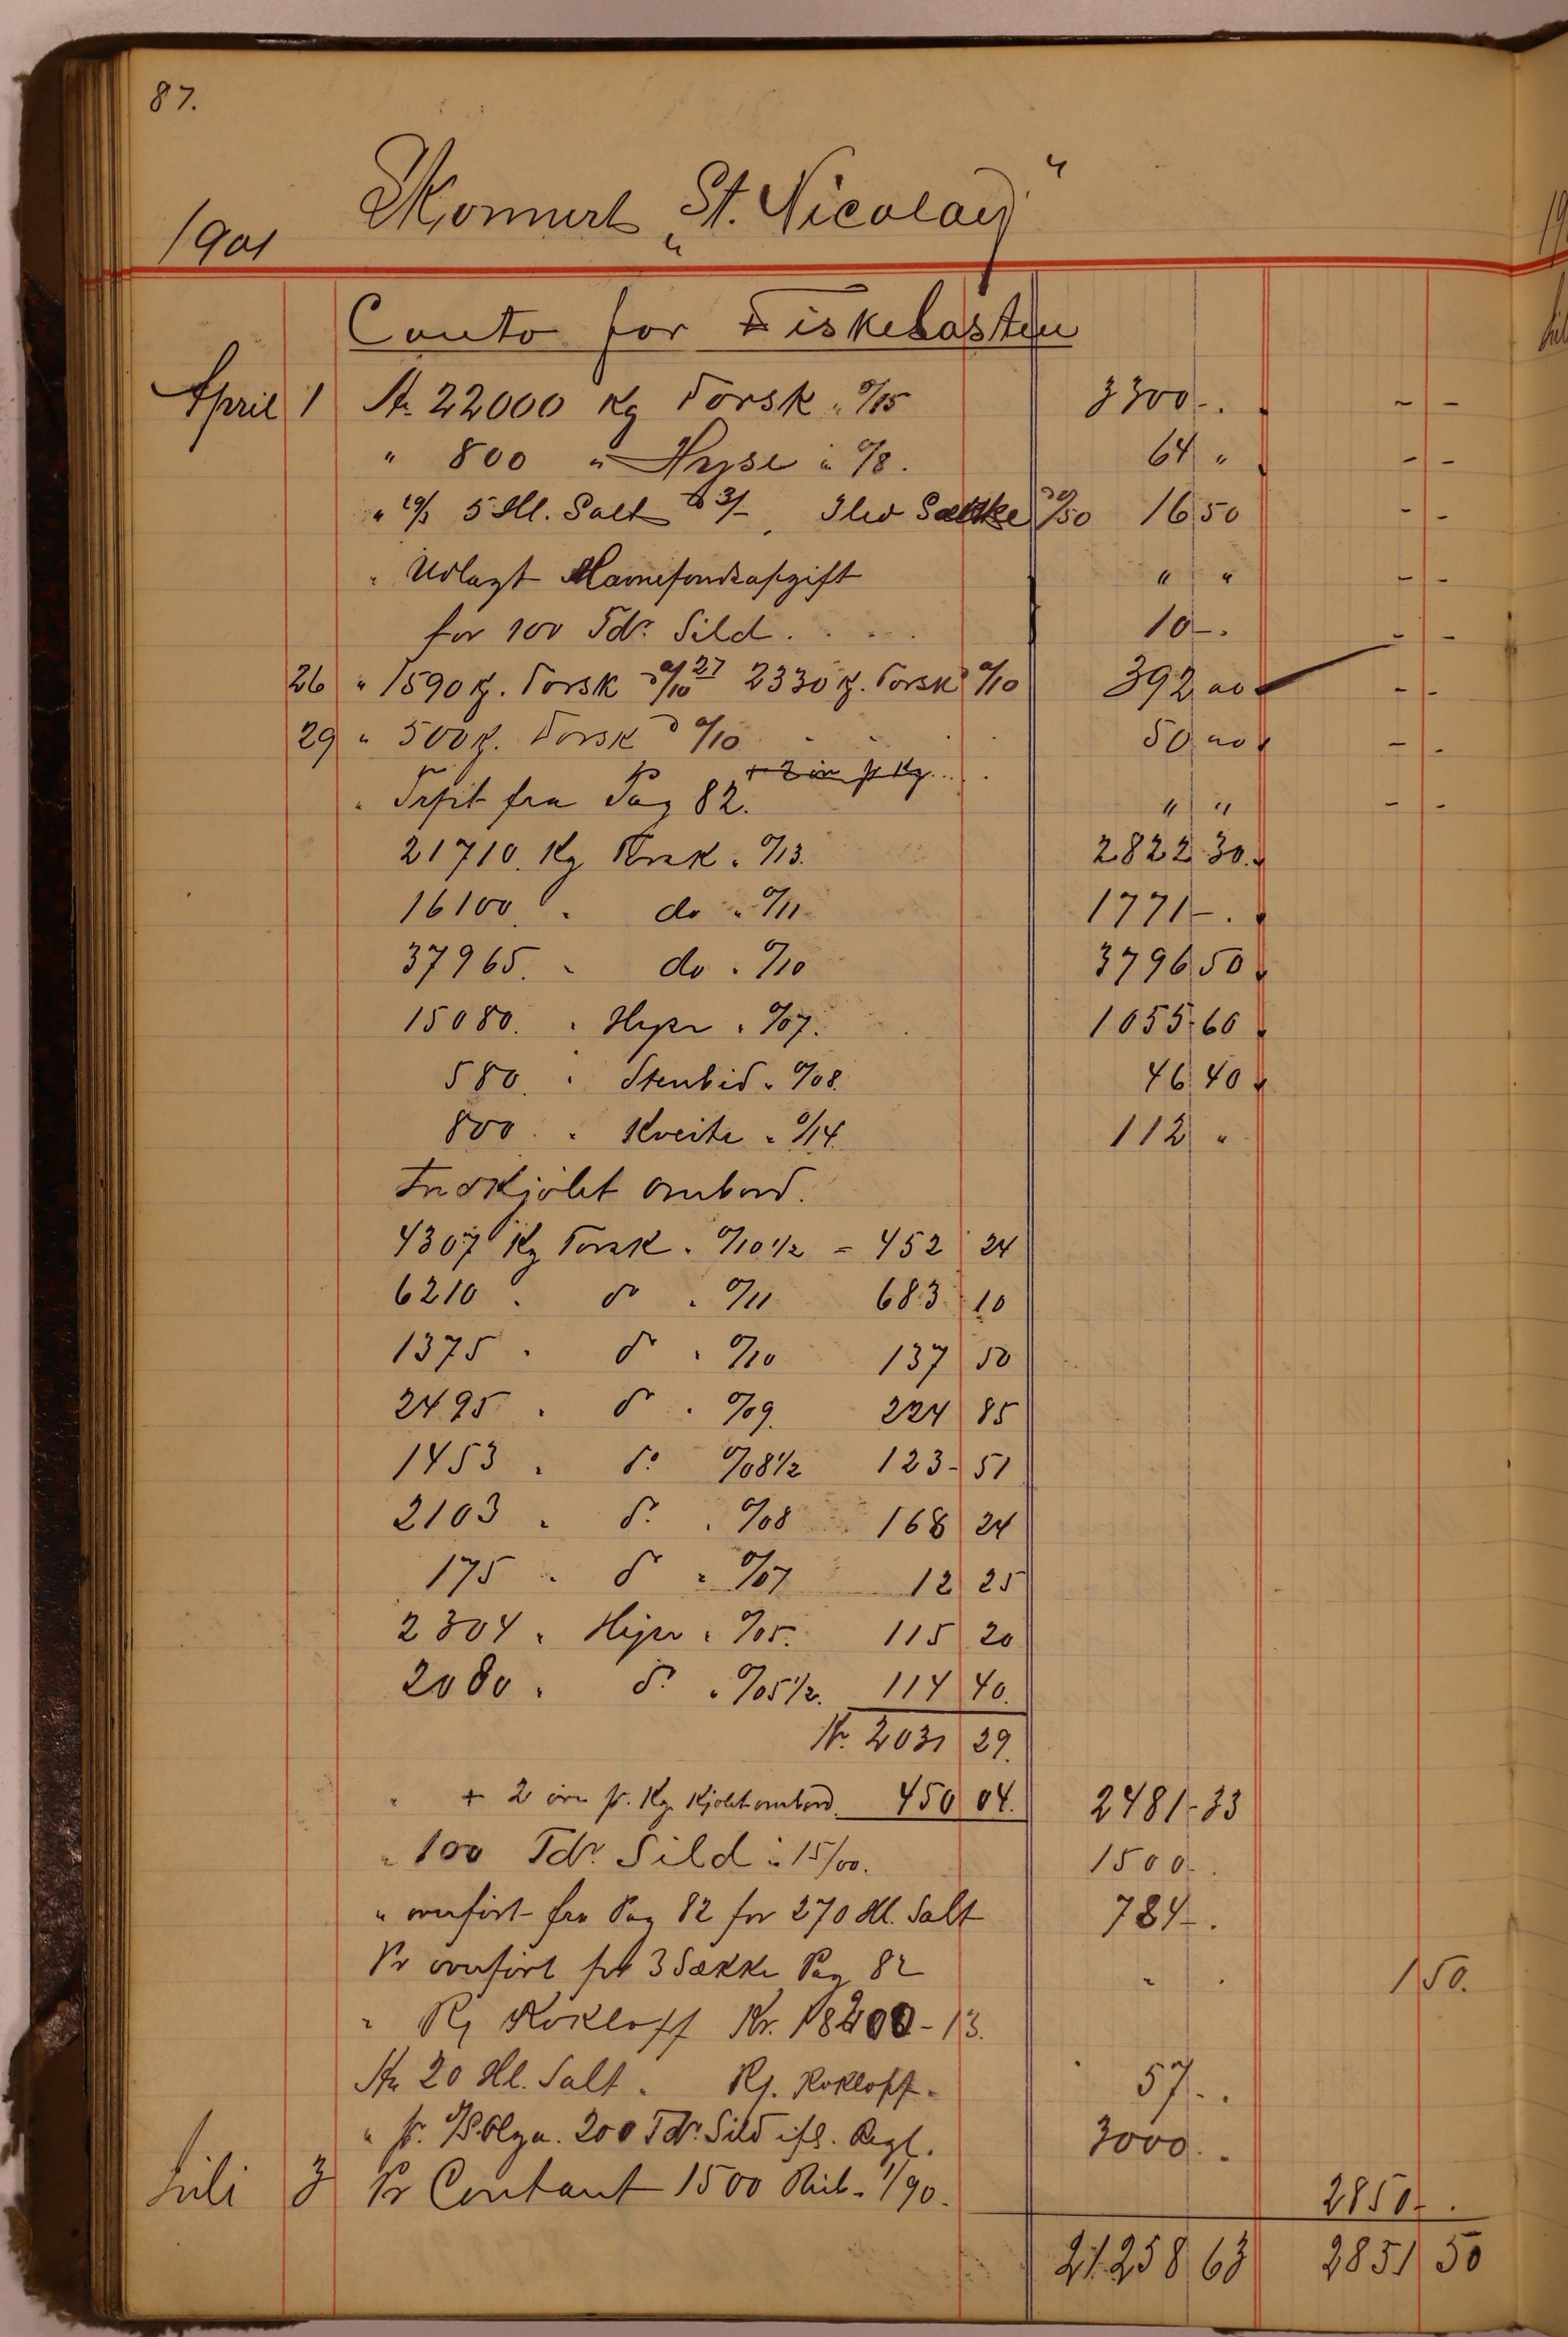 87.
Skonnert „St. Nicolay"
1901
Conto for Fiskelasten
April 1 An 22000 Kg Torsk " 0/15 3300 - . - -
" 800 " Hyse " 0/8. 64 " - -
" 5 Hl. Salt à 3/- , 3 à 0/50 16 50 - -
" Udlagt Havnefondsafgift " " - -
for 100 Tdr. Sild . . . . 10 - . - -
26 " 1590 K. Torsk à 0/10 27 2330 K. Torsk à 0/10 392 00 - -
29 " 500 K. Torsk à 0/10 50 00 - -
+ 2 øre pr Kg. . . .
" fra Pag 82. " " - -
21710. Kg Torsk " 0/13. 2822 30.
16100 " do " 0/11 1771 - .
37965. " do " 0/10 3796 50
15080. " Hyse " 0/07. 1055 60
580. " Stenbid " 0/08. 46 40
800 " Kveite " 0/14 112 "
Indkjøbt ombord.
4307 Kg Torsk " 0/10 1/2 = 452 24
6210 " do " 0/11 683 10
1375 " do " 0/10 137 50
2495 " do " 0/09. 224 85
1453 " do 0/08 1/2 123 - 51
2103 " do " 0/08 168 24
175 " do " 0/07 12 25
2304 " Hyse " 0/05. 115 20
2080 " do " 0/05 1/2. 114 40.
Kr. 2031 29.
" + 2 øre pr. Kg. Kjøbt ombord 450 04. 2481 - 33
" 100 Tdr. Sild " 15/00. 1500 - .
" overført fra Pag 82 for 270 Hl. Salt 784 - .
Pr overført for 3 Sække Pag 82 " . 1 50.
" Rj Kokloff Kr. 18200 - 13.
An 20 Hl. Salt " Rj. Kokloff. 57 - .
" pr. Olga. 200 Tdr. Sild ifl. Regl. 3000 . .
Juli 3 Pr Contant 1500 Rub. 1/90. 2850 - .
21258 63 2851 50